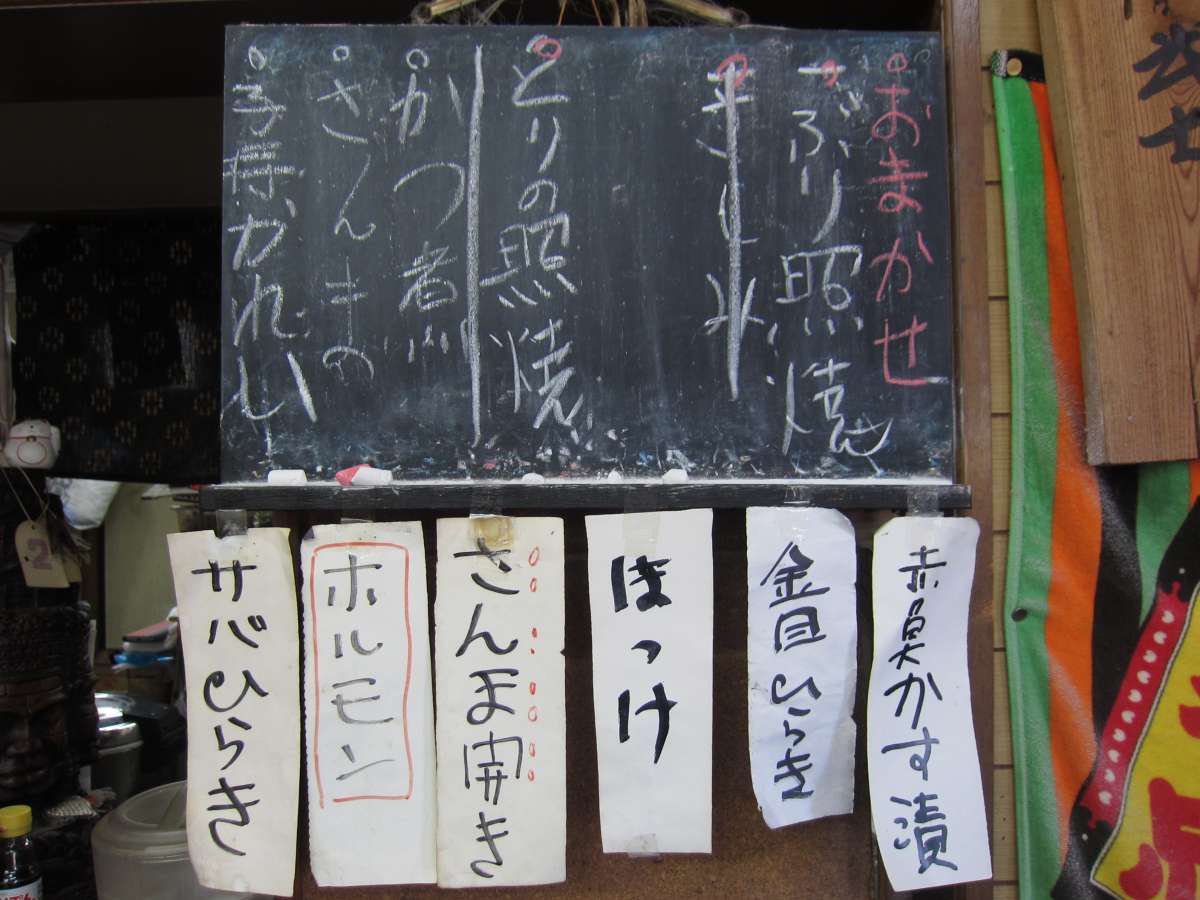 おまかせ
ぶり照焼
とりの照焼
かつ煮
さんまの
子持かれい
赤魚かす漬
金目ひらき
ほっけ
さんま開き
ホルモン
サバひらき
2